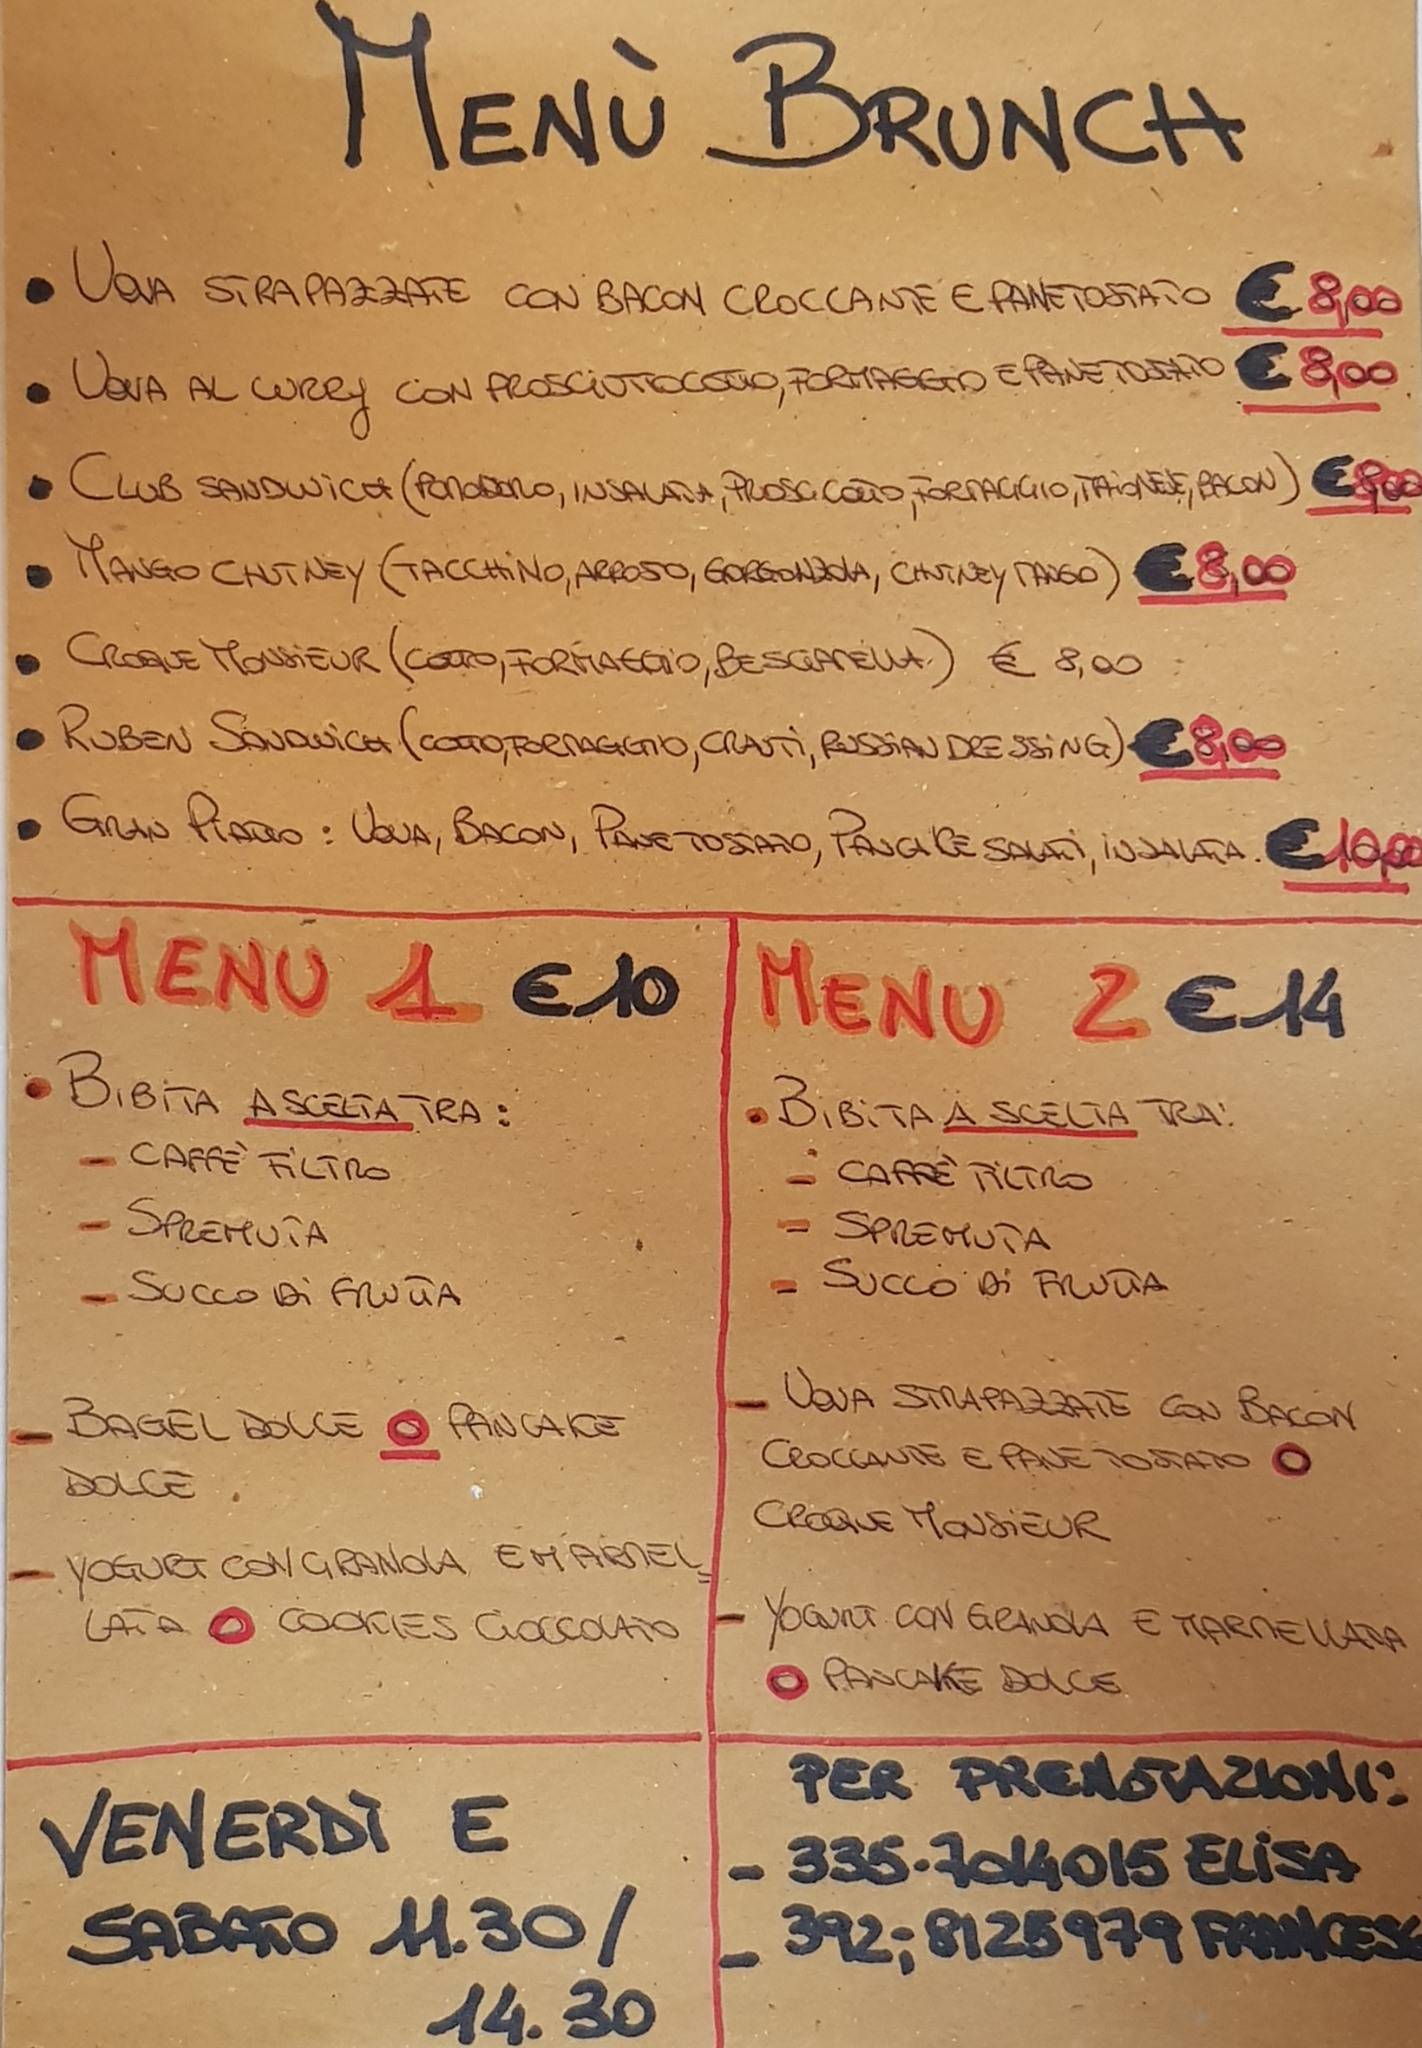 MENÙ BRUNCH
• UOVA STRAPAZZATE CON BACON CROCCANTE E PANE TOSTATO € 8,00
• UOVA AL CURRY CON PROSCIUTTO COTTO, FORMAGGIO E PANE TOSTATO € 8,00
• CLUB SANDWICH (POMODORO, INSALATA, PROSC. COTTO, FORMAGGIO, MAIONESE, BACON) € 8,00
• MANGO CHUTNEY (TACCHINO, ARROSTO, GORGONZOLA, CHUTNEY MANGO) € 8,00
• CROQUE MONSIEUR (COTTO, FORMAGGIO, BESCIAMELLA) € 8,00
• RUBEN SANDWICH (COTTO, FORMAGGIO, CRAUTI, RUSSIAN DRESSING) € 8,00
• GRAN PIATTO: UOVA, BACON, PANE TOSTATO, PANCAKE SALATI, INSALATA. € 10,00
MENU 1 € 10
• BIBITA A SCELTA TRA:
- CAFFÈ FILTRO
- SPREMUTA
- SUCCO DI FRUTTA
- BAGEL DOLCE O PANCAKE
DOLCE
- YOGURT CON GRANOLA E MARMEL=
LATA O COOKIES CIOCCOLATO
MENU 2 € 14
• BIBITA A SCELTA TRA:
- CAFFÈ FILTRO
- SPREMUTA
- SUCCO DI FRUTTA
- UOVA STRAPAZZATE CON BACON
CROCCANTE E PANE TOSTATO O
CROQUE MONSIEUR
- YOGURT CON GRANOLA E MARMELLATA
O PANCAKE DOLCE
VENERDÌ E
SABATO 11.30/
14.30
PER PRENOTAZIONI:
- 335.7014015 ELISA
- 392;8125979 FRANCESC